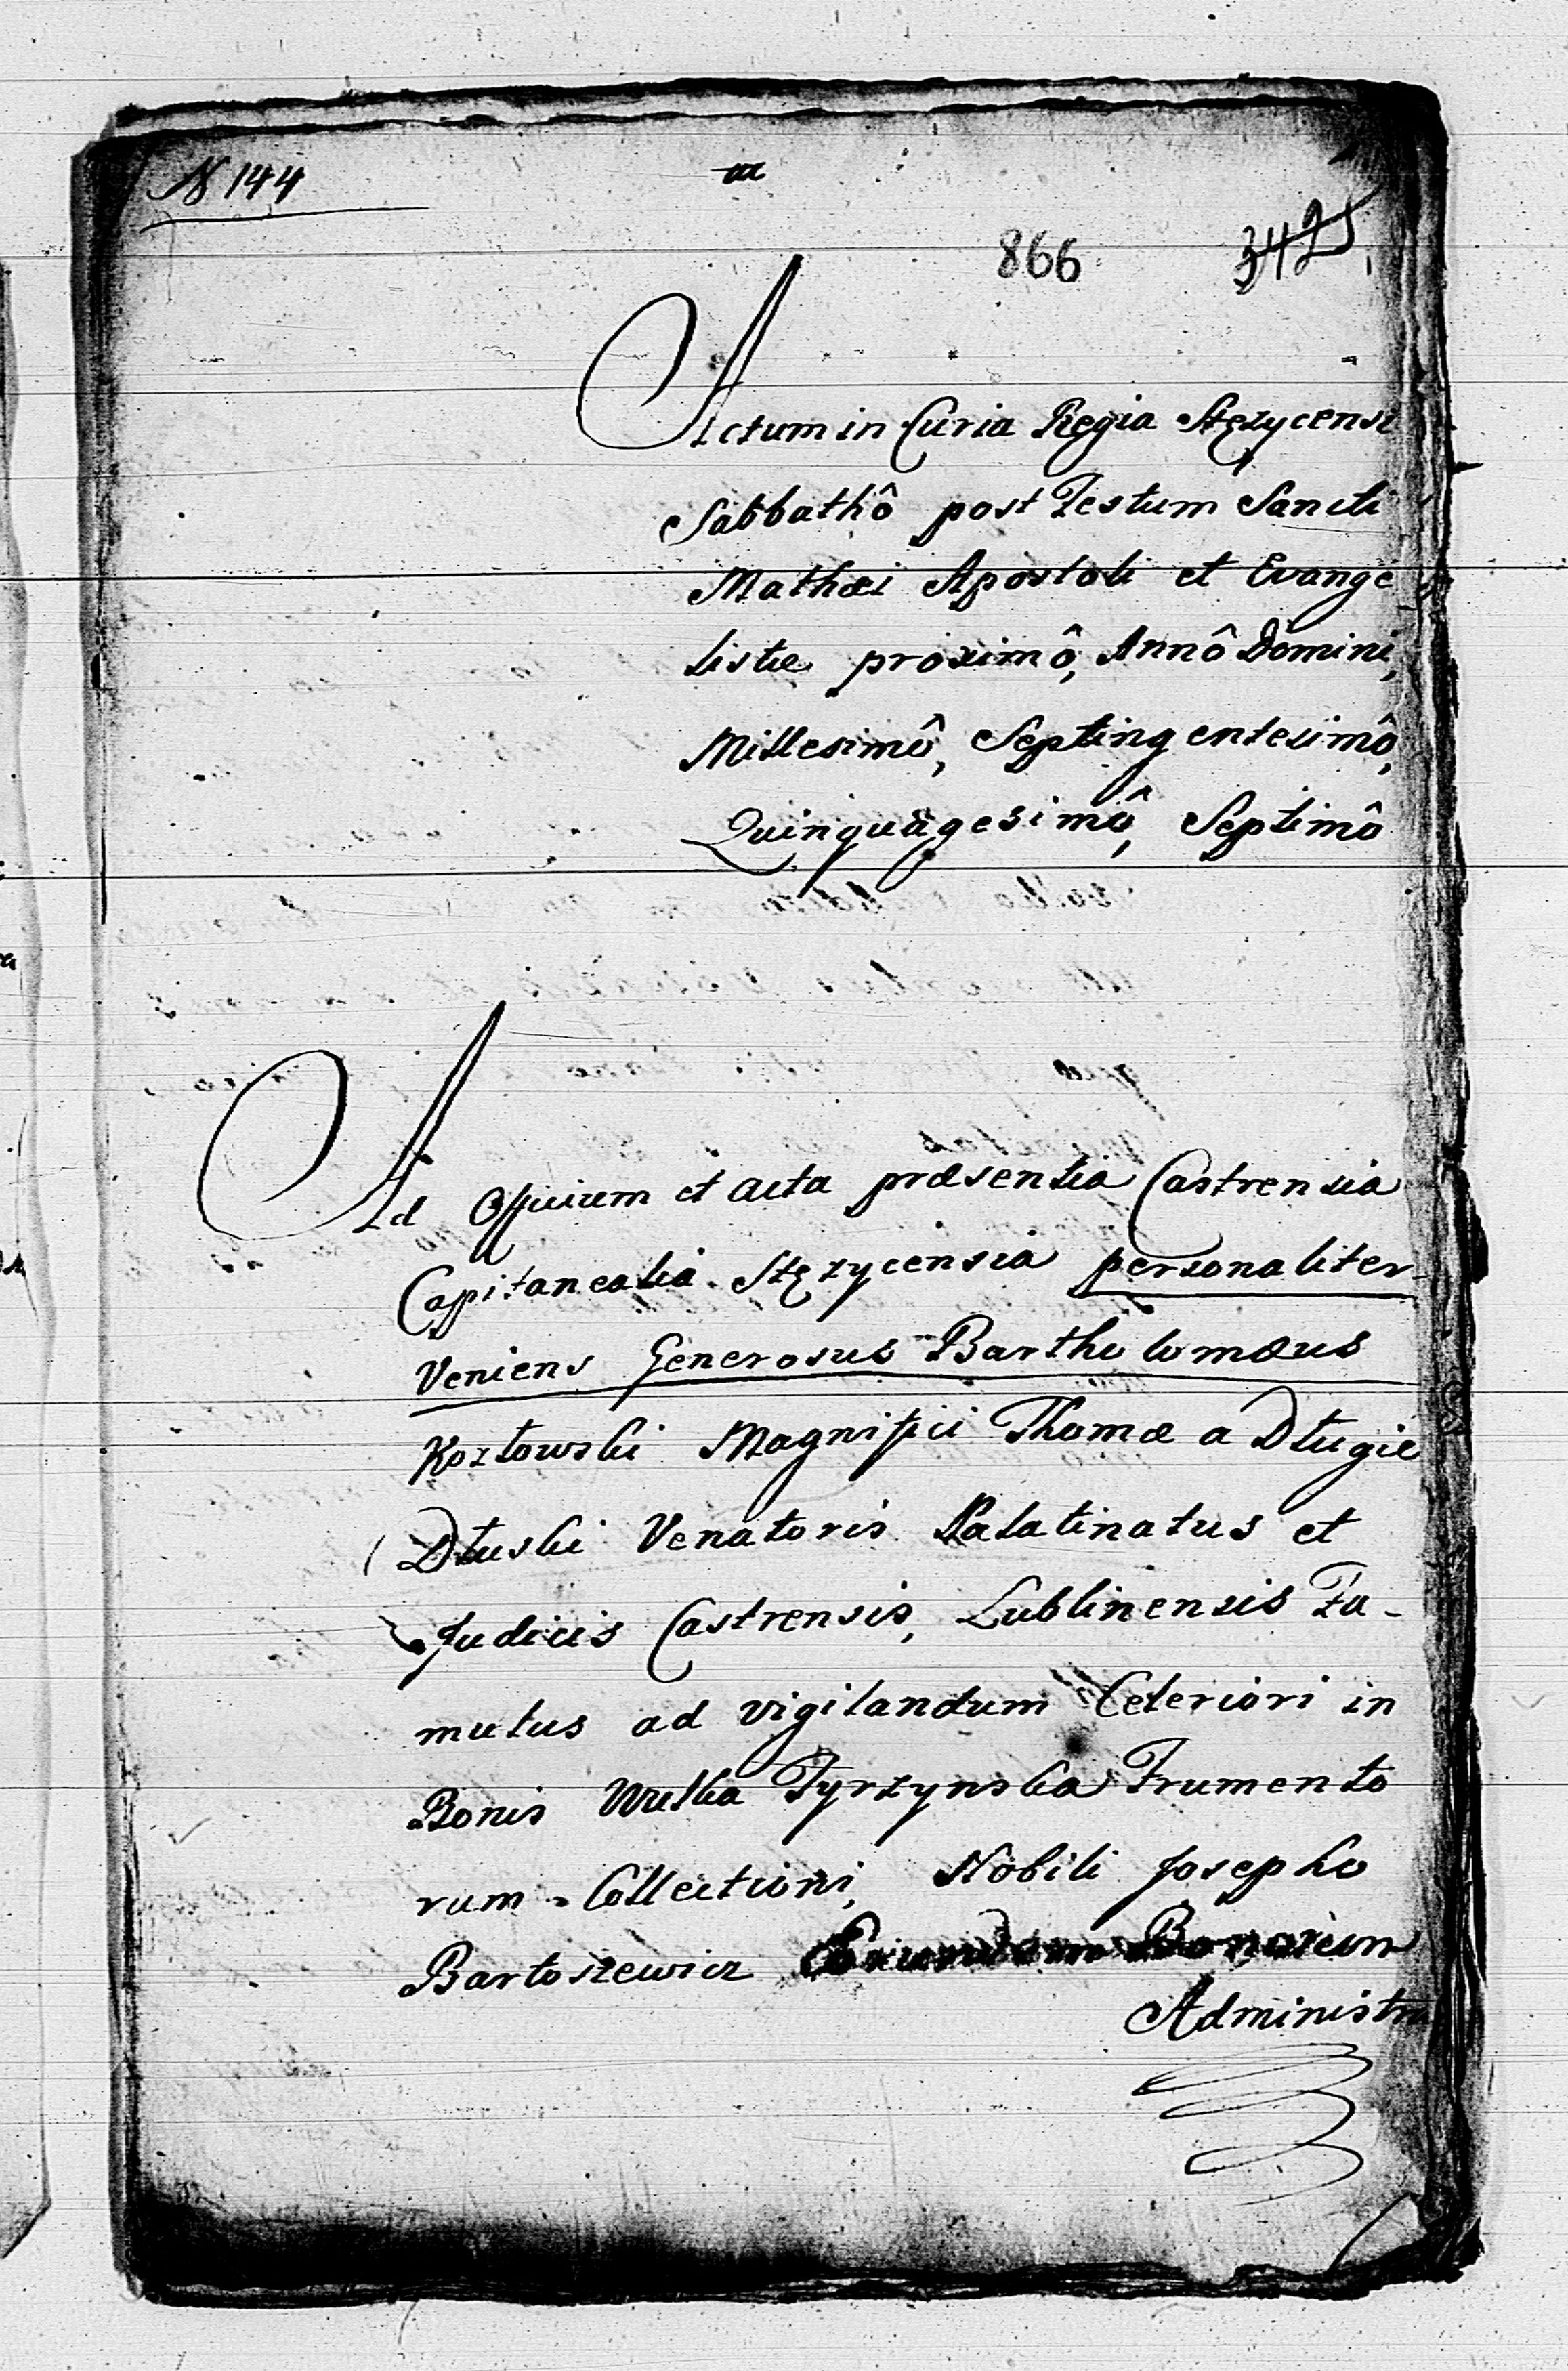 N 144
866 3425
Actum in Curia Regia Stężycensi
Sabbathô post Festum Sancti
Mathæi Apostoli et Evange
listæ proximô, Annô Domini,
Millesimô, Septingentesimô,
Quinquagesimô, Septimô
Ad Officium et acta præsentia Castrensia
Capitanealia Stężycensia personaliter
Veniens Generosus Bartholomæus
Kozłowski Magnifici Thomæ a Długie
Dłuski Venatoris Palatinatus et
Judicis Castrensis, Lublinensis Fa-
mulus ad vigilandum Celeriori in
Bonis Wulka Tyrzynska Frumento
rum Collectioni, Nobili Josepho
Bartoszewicz Eorundem Bonorum
Administra